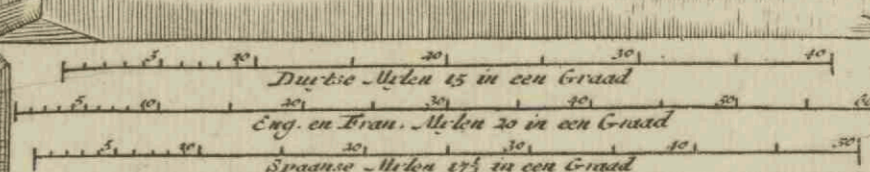 5 10 20 30 40
Duytse Mylen 15 in een Graad
5 10 20 30 40 50 60
Eng. en Fran. Mylen 20 in een Graad
5 10 20 30 40 50
Spaanse Mylen 17½ in een Graad